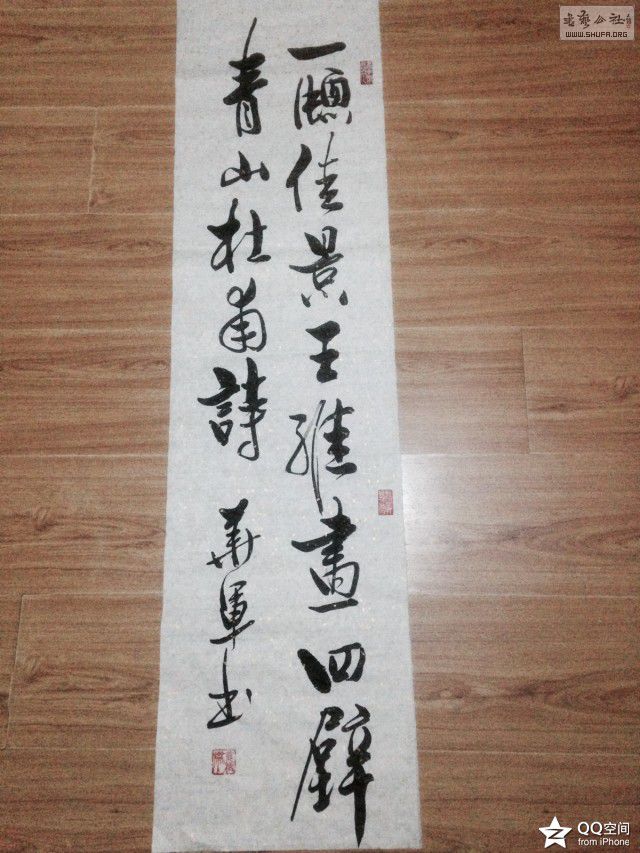 一牕佳景王維畫四壁
青山杜甫詩
華軍书
書藝公社
WWW.SHUFA.ORG
QQ空间
from iPhone